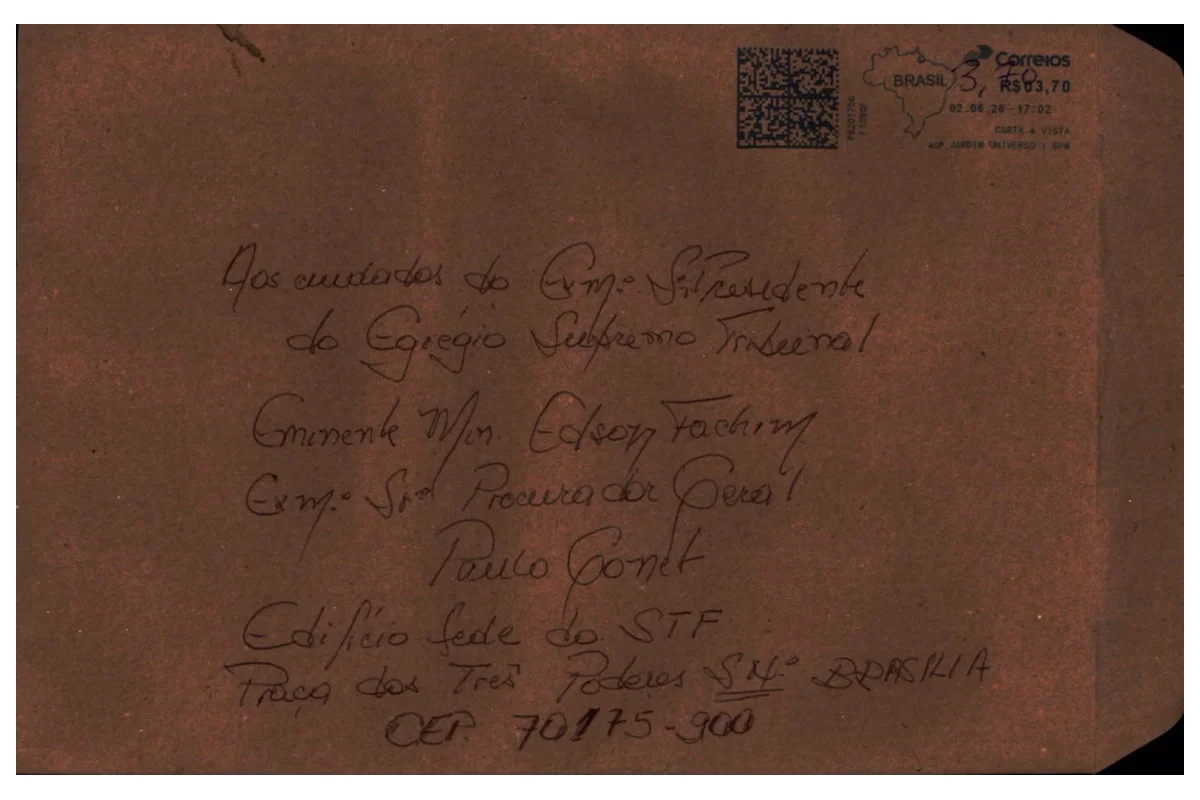 Correios
BRASIL
3,70
R$03,70
02.06.26-17:02
CARTA A VISTA
AGF JARDIM UNIVERSO / SPM
Aos cuidados do Exm.º Sr. Presidente
do Egrégio Supremo Tribunal
Eminente Min. Edson Fachim
Exm.º Srº Procurador Geral
Paulo Gonet
Edifício Sede do STF
Praça dos Três Poderes SNº BRASILIA
CEP. 70175-900